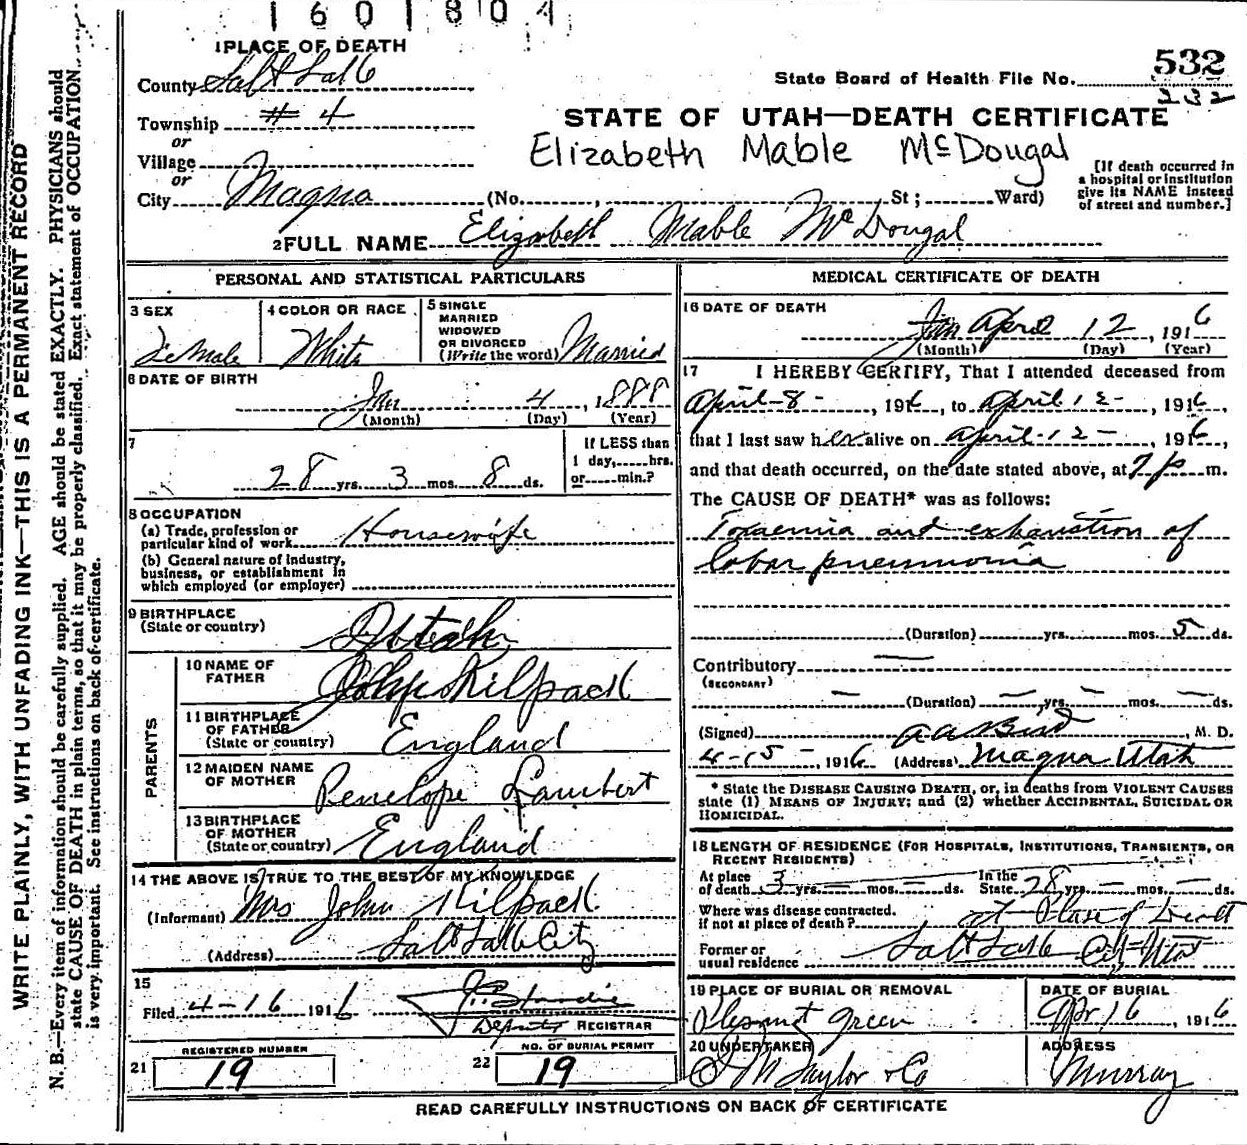 1601804
1 PLACE OF DEATH
County Salt Lake
State Board of Health File No. 532
232
Township # 4
STATE OF UTAH—DEATH CERTIFICATE
or
Village
Elizabeth Mable McDougal
or
City Magna (No. , St; Ward)
[If death occurred in a hospital or institution give its NAME instead of street and number.]
2 FULL NAME Elizabeth Mable McDougal
PERSONAL AND STATISTICAL PARTICULARS
3 SEX
Female
4 COLOR OR RACE
White
5 SINGLE
MARRIED
WIDOWED
OR DIVORCED
(Write the word) Married
6 DATE OF BIRTH
Jan 4, 1888
(Month) (Day) (Year)
7
28 yrs. 3 mos. 8 ds.
If LESS than
1 day, hrs.
or min.?
8 OCCUPATION
(a) Trade, profession or
particular kind of work Housewife
(b) General nature of industry,
business, or establishment in
which employed (or employer)
9 BIRTHPLACE
(State or country) Utah
PARENTS
10 NAME OF
FATHER John Kilpack
11 BIRTHPLACE
OF FATHER
(State or country) England
12 MAIDEN NAME
OF MOTHER Penelope Lambert
13 BIRTHPLACE
OF MOTHER
(State or country) England
14 THE ABOVE IS TRUE TO THE BEST OF MY KNOWLEDGE
(Informant) Mrs John Kilpack
(Address) Salt Lake City
15
Filed 4-16 1916
Deputy REGISTRAR
21 REGISTERED NUMBER
19
22 NO. OF BURIAL PERMIT
19
MEDICAL CERTIFICATE OF DEATH
16 DATE OF DEATH
Jan April 12, 1916
(Month) (Day) (Year)
17 I HEREBY CERTIFY, That I attended deceased from
April-8-, 1916, to April 12-, 1916,
that I last saw her alive on April-12-, 1916,
and that death occurred, on the date stated above, at 7 p m.
The CAUSE OF DEATH* was as follows:
Toxaemia and exhaustion of
lobar pneumonia
(Duration) yrs. mos. 5 ds.
Contributory —
(SECONDARY)
— (Duration) — yrs. — mos. — ds.
(Signed) A A Bird, M. D.
4-15-, 1916 (Address) Magna Utah
* State the DISEASE CAUSING DEATH, or, in deaths from VIOLENT CAUSES
state (1) MEANS OF INJURY; and (2) whether ACCIDENTAL, SUICIDAL OR
HOMICIDAL.
18 LENGTH OF RESIDENCE (FOR HOSPITALS, INSTITUTIONS, TRANSIENTS, OR
RECENT RESIDENTS)
At place
of death 3 yrs. — mos. — ds. In the
State 28 yrs. — mos. — ds.
Where was disease contracted.
if not at place of death? at Place of Death
Former or
usual residence Salt Lake City Utah
19 PLACE OF BURIAL OR REMOVAL
Plesant Green
DATE OF BURIAL
Apr 16, 1916
20 UNDERTAKER
M Taylor & Co
ADDRESS
Murray
READ CAREFULLY INSTRUCTIONS ON BACK OF CERTIFICATE
WRITE PLAINLY, WITH UNFADING INK—THIS IS A PERMANENT RECORD
N. B.—Every item of information should be carefully supplied. AGE should be stated EXACTLY. PHYSICIANS should
state CAUSE OF DEATH in plain terms, so that it may be properly classified. Exact statement of OCCUPATION
is very important. See instructions on back of certificate.